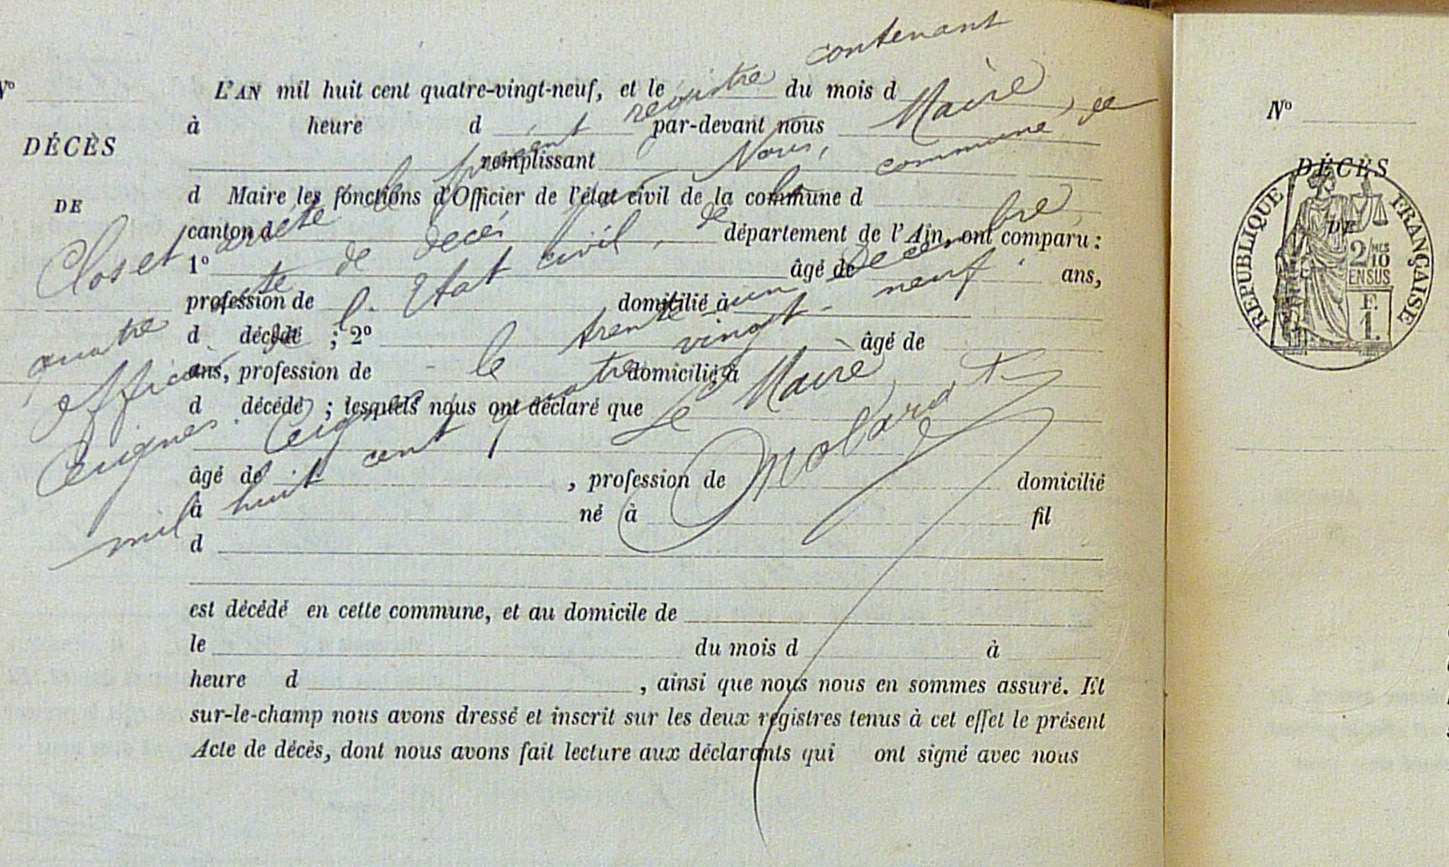 N°
DÉCÈS
DE
L'AN mil huit cent quatre-vingt-neuf, et le du mois d
à heure d par-devant nous
remplissant
d Maire les fonctions d'Officier de l'état civil de la commune d
canton d département de l'Ain, ont comparu :
1° âgé de ans,
profession de domicilié à
d décédé ; 2° âgé de
ans, profession de domicilié à
d décédé ; lesquels nous ont déclaré que
âgé de , profession de domicilié
à né à fil
d
est décédé en cette commune, et au domicile de
le du mois d à
heure d , ainsi que nous nous en sommes assuré. Et
sur-le-champ nous avons dressé et inscrit sur les deux registres tenus à cet effet le présent
Acte de décès, dont nous avons fait lecture aux déclarants qui ont signé avec nous
Clos et arrêté le présent registre contenant
quatre acte de décés par Nous, Maire,
officier de l'Etat civil, de la commune de
Ceignes.
Ceignes le trente-un décembre
mil huit cent quatre vingt-neuf.
Le Maire
Molard
N°
DÉCÈS
DE
RÉPUBLIQUE FRANÇAISE
2/10
EN SUS
F.
1.